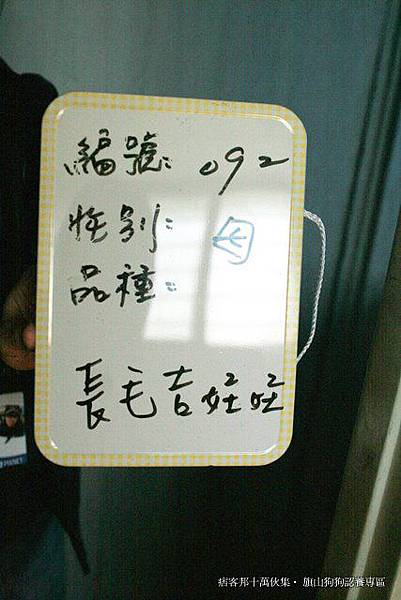 編號: 092
性別:
品種:
長毛吉娃娃
PIXNET
痞客邦十萬伙集‧旗山狗狗認養專區